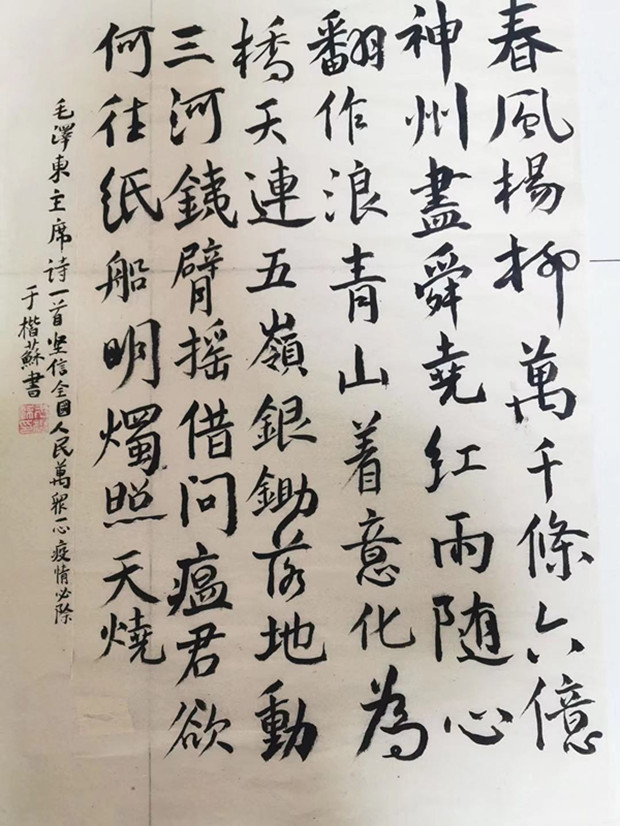 春風楊柳萬千條六億
神州盡舜堯紅雨随心
翻作浪青山着意化為
橋天連五嶺銀鋤落地動
三河銕臂摇借问瘟君欲
何往紙船明燭照天燒
毛澤東主席诗一首坚信全國人民萬眾一心疫情必除
于楷蘇書